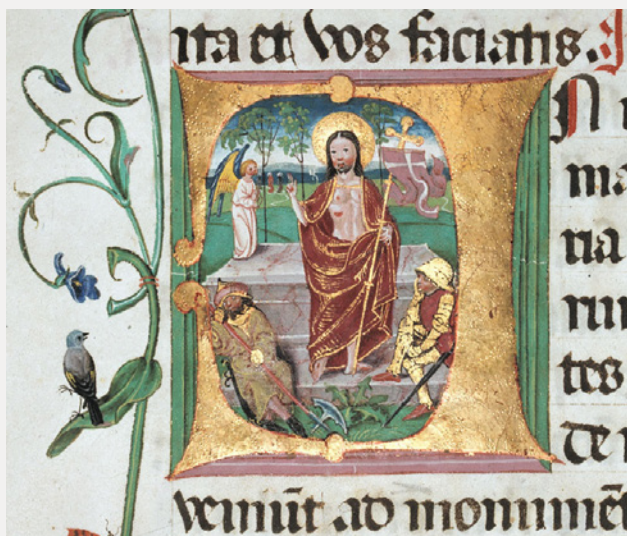 ita et vos faciatis.
N i
ma
ria
run
tes
de
veniūt ad monumēt